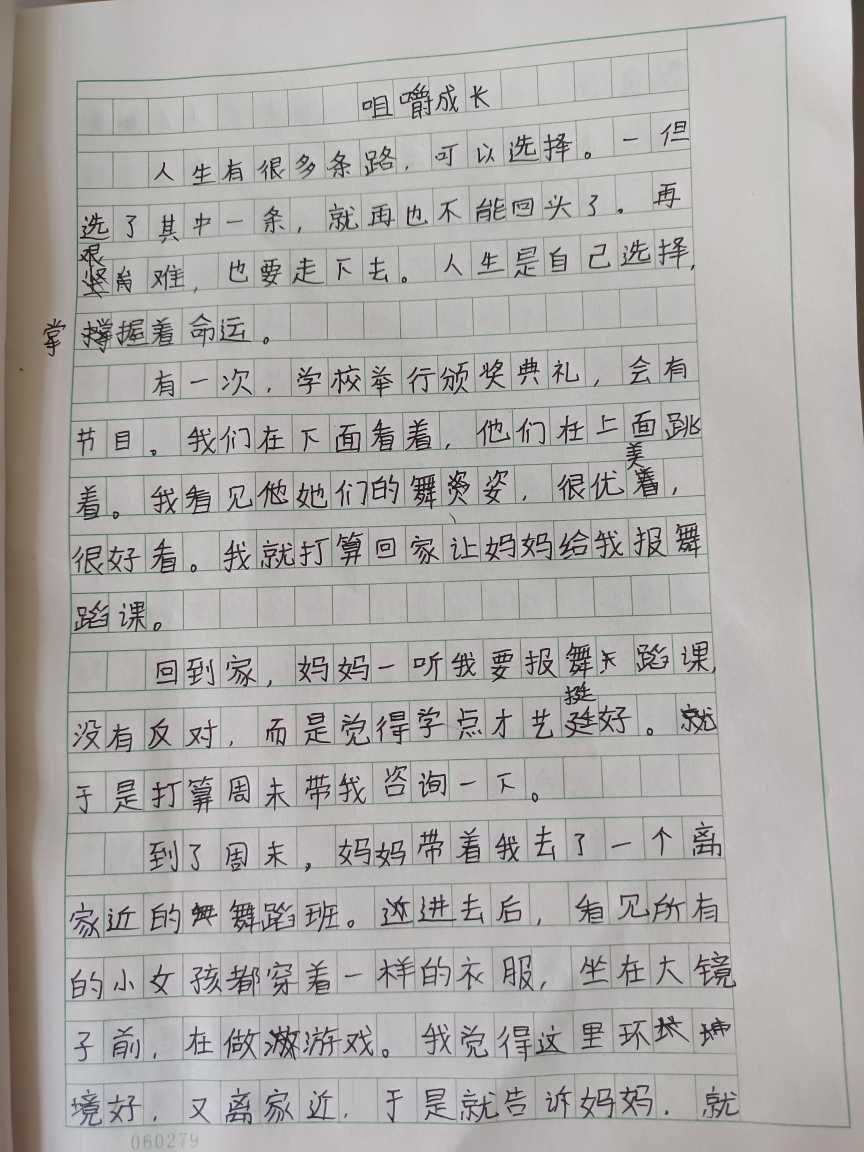 咀嚼成长
人生有很多条路，可以选择。一但
选了其中一条，就再也不能回头了。再
艰难，也要走下去。人生是自己选择，
掌握着命运。
有一次，学校举行颁奖典礼，会有
节目。我们在下面看着，他们在上面跳
着。我看见他她们的舞姿，很优美，
很好看。我就打算回家让妈妈给我报舞
蹈课。
回到家，妈妈一听我要报舞蹈课，
没有反对，而是觉得学点才艺挺好。就
于是打算周末带我咨询一下。
到了周末，妈妈带着我去了一个离
家近的舞蹈班。进去后，看见所有
的小女孩都穿着一样的衣服，坐在大镜
子前，在做游戏。我觉得这里环
境好，又离家近，于是就告诉妈妈，就
060279